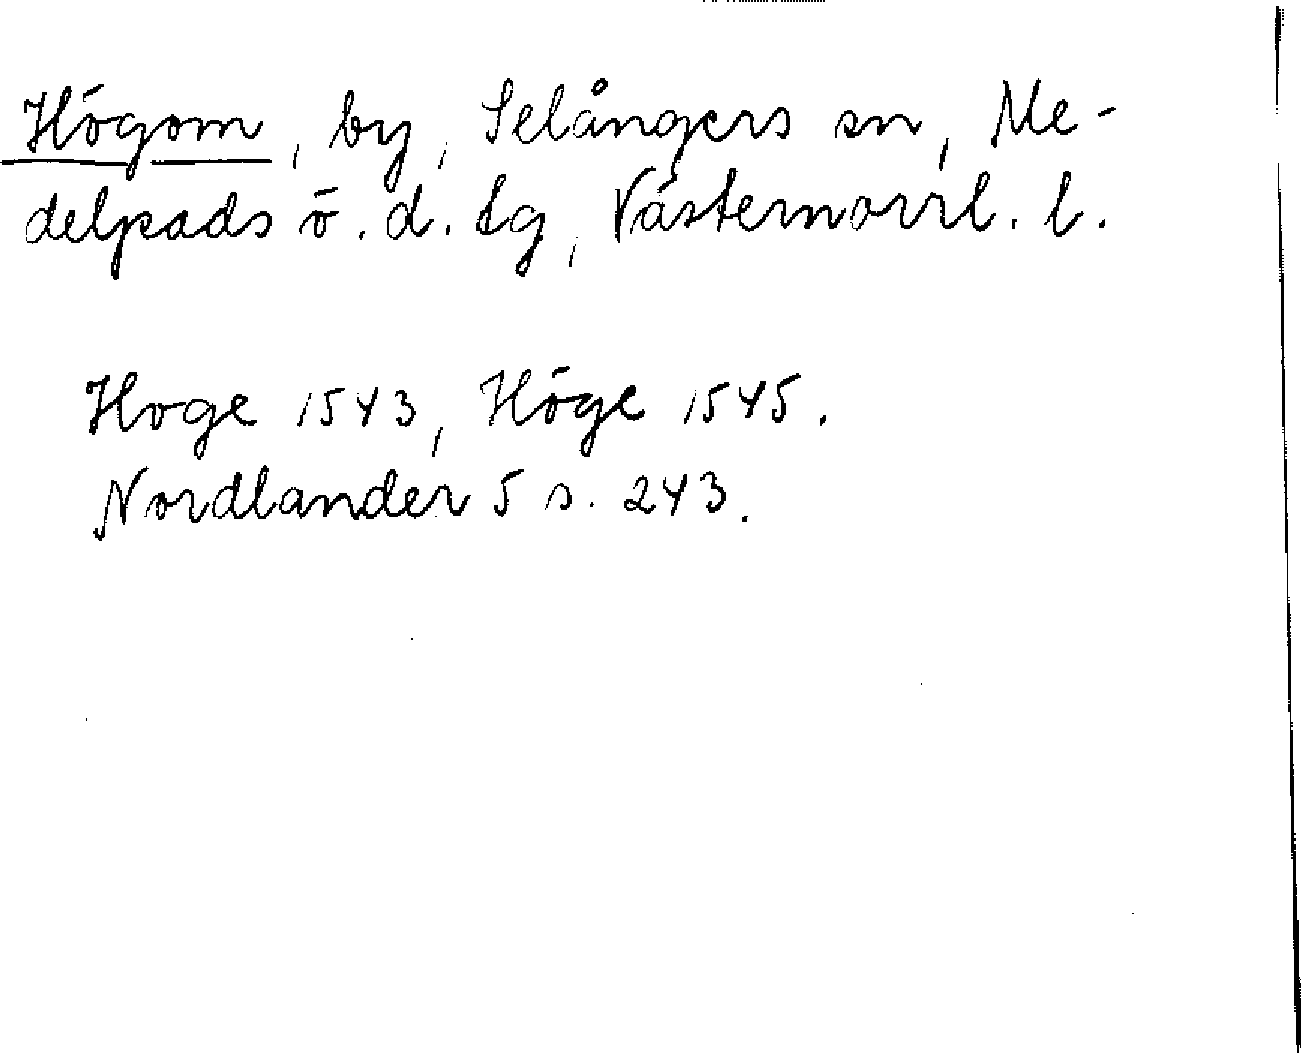 Högom, by, Selångers sn, Me-
delpads ö. d. tg, Västernorrl. l.
Hoge 1543, Höge 1545.
Nordlander 5 s. 243.